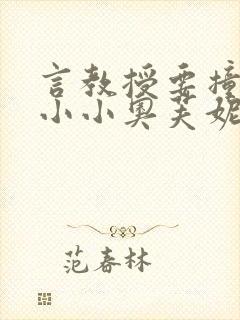 言教授要撞
小小奥芙妮
范春林